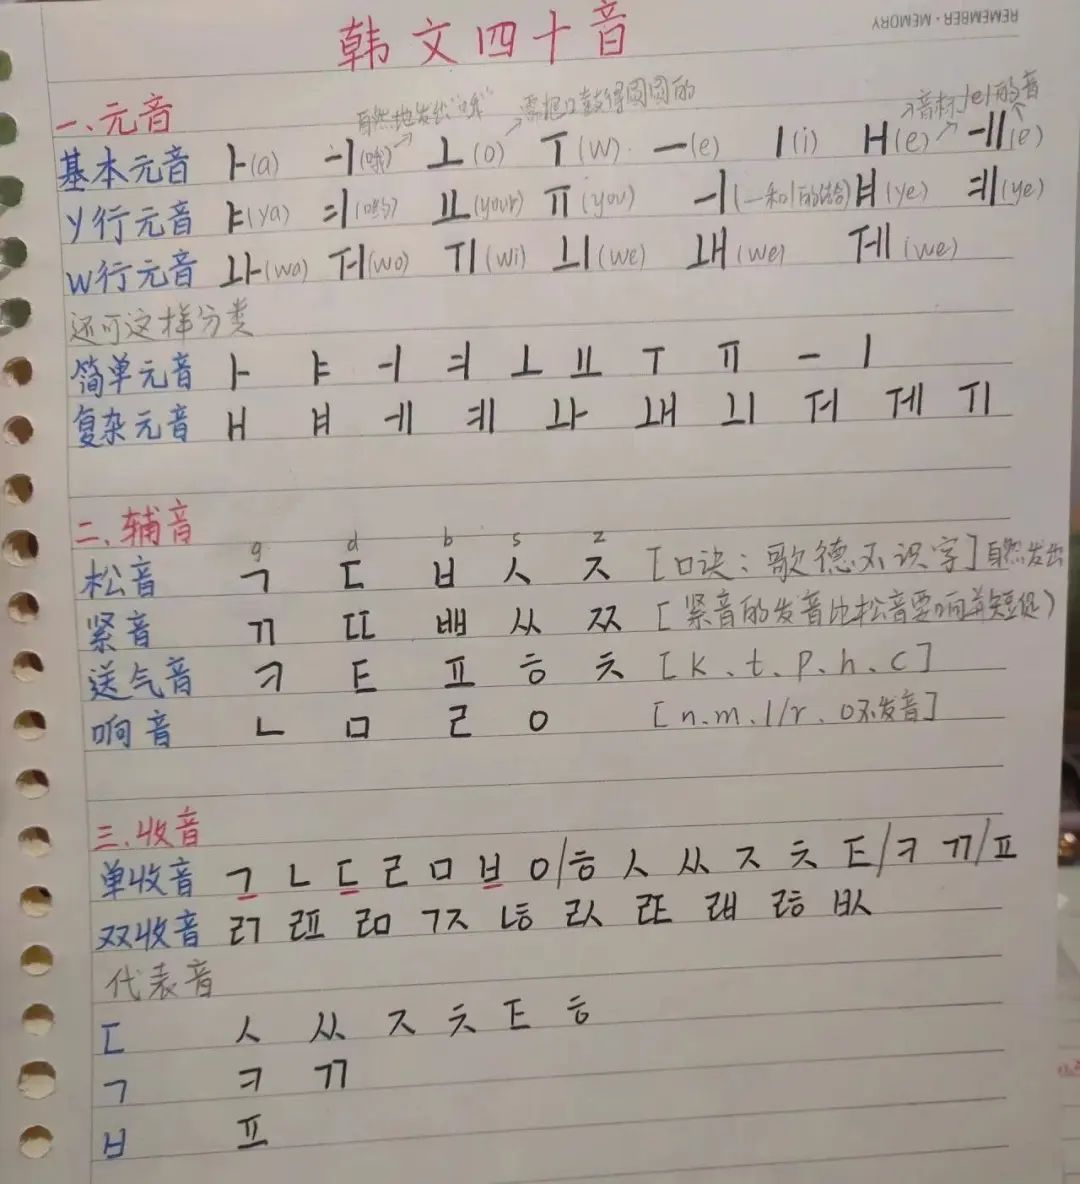 REMEMBER · MEMORY
韩文四十音
一、元音
自然地发出"哦" 需把口鼓得圆圆的 音标/e/的音
基本元音 ㅏ(a) ㅓ(哦) ㅗ(o) ㅜ(w) ㅡ(e) ㅣ(i) ㅐ(e) ㅔ(e)
y行元音 ㅑ(ya) ㅕ(哟) ㅛ(your) ㅠ(you) ㅢ(一和l的结合) ㅒ(ye) ㅖ(ye)
w行元音 ㅘ(wa) ㅝ(wo) ㅟ(wi) ㅚ(we) ㅙ(we) ㅞ(we)
还可这样分类
简单元音 ㅏ ㅑ ㅓ ㅕ ㅗ ㅛ ㅜ ㅠ ㅡ ㅣ
复杂元音 ㅐ ㅒ ㅔ ㅖ ㅘ ㅙ ㅚ ㅝ ㅞ ㅟ
二、辅音
g d b s z
松音 ㄱ ㄷ ㅂ ㅅ ㅈ [口诀：歌德不识字]自然发出
紧音 ㄲ ㄸ ㅃ ㅆ ㅉ [紧音的发音比松音要响并短促)
送气音 ㅋ ㅌ ㅍ ㅎ ㅊ [k.t.p.h.c]
响音 ㄴ ㅁ ㄹ ㅇ [n.m.l/r.o不发音]
三.收音
单收音 ㄱ ㄴ ㄷ ㄹ ㅁ ㅂ ㅇ/ㅎ ㅅ ㅆ ㅈ ㅊ ㅌ/ㅋ ㄲ/ㅍ
双收音 ㄺ ㄿ ㄻ ㄱㅈ ㄶ ㄽ ㄾ ㄼ ㅀ ㅄ
代表音
ㄷ ㅅ ㅆ ㅈ ㅊ ㅌ ㅎ
ㄱ ㅋ ㄲ
ㅂ ㅍ